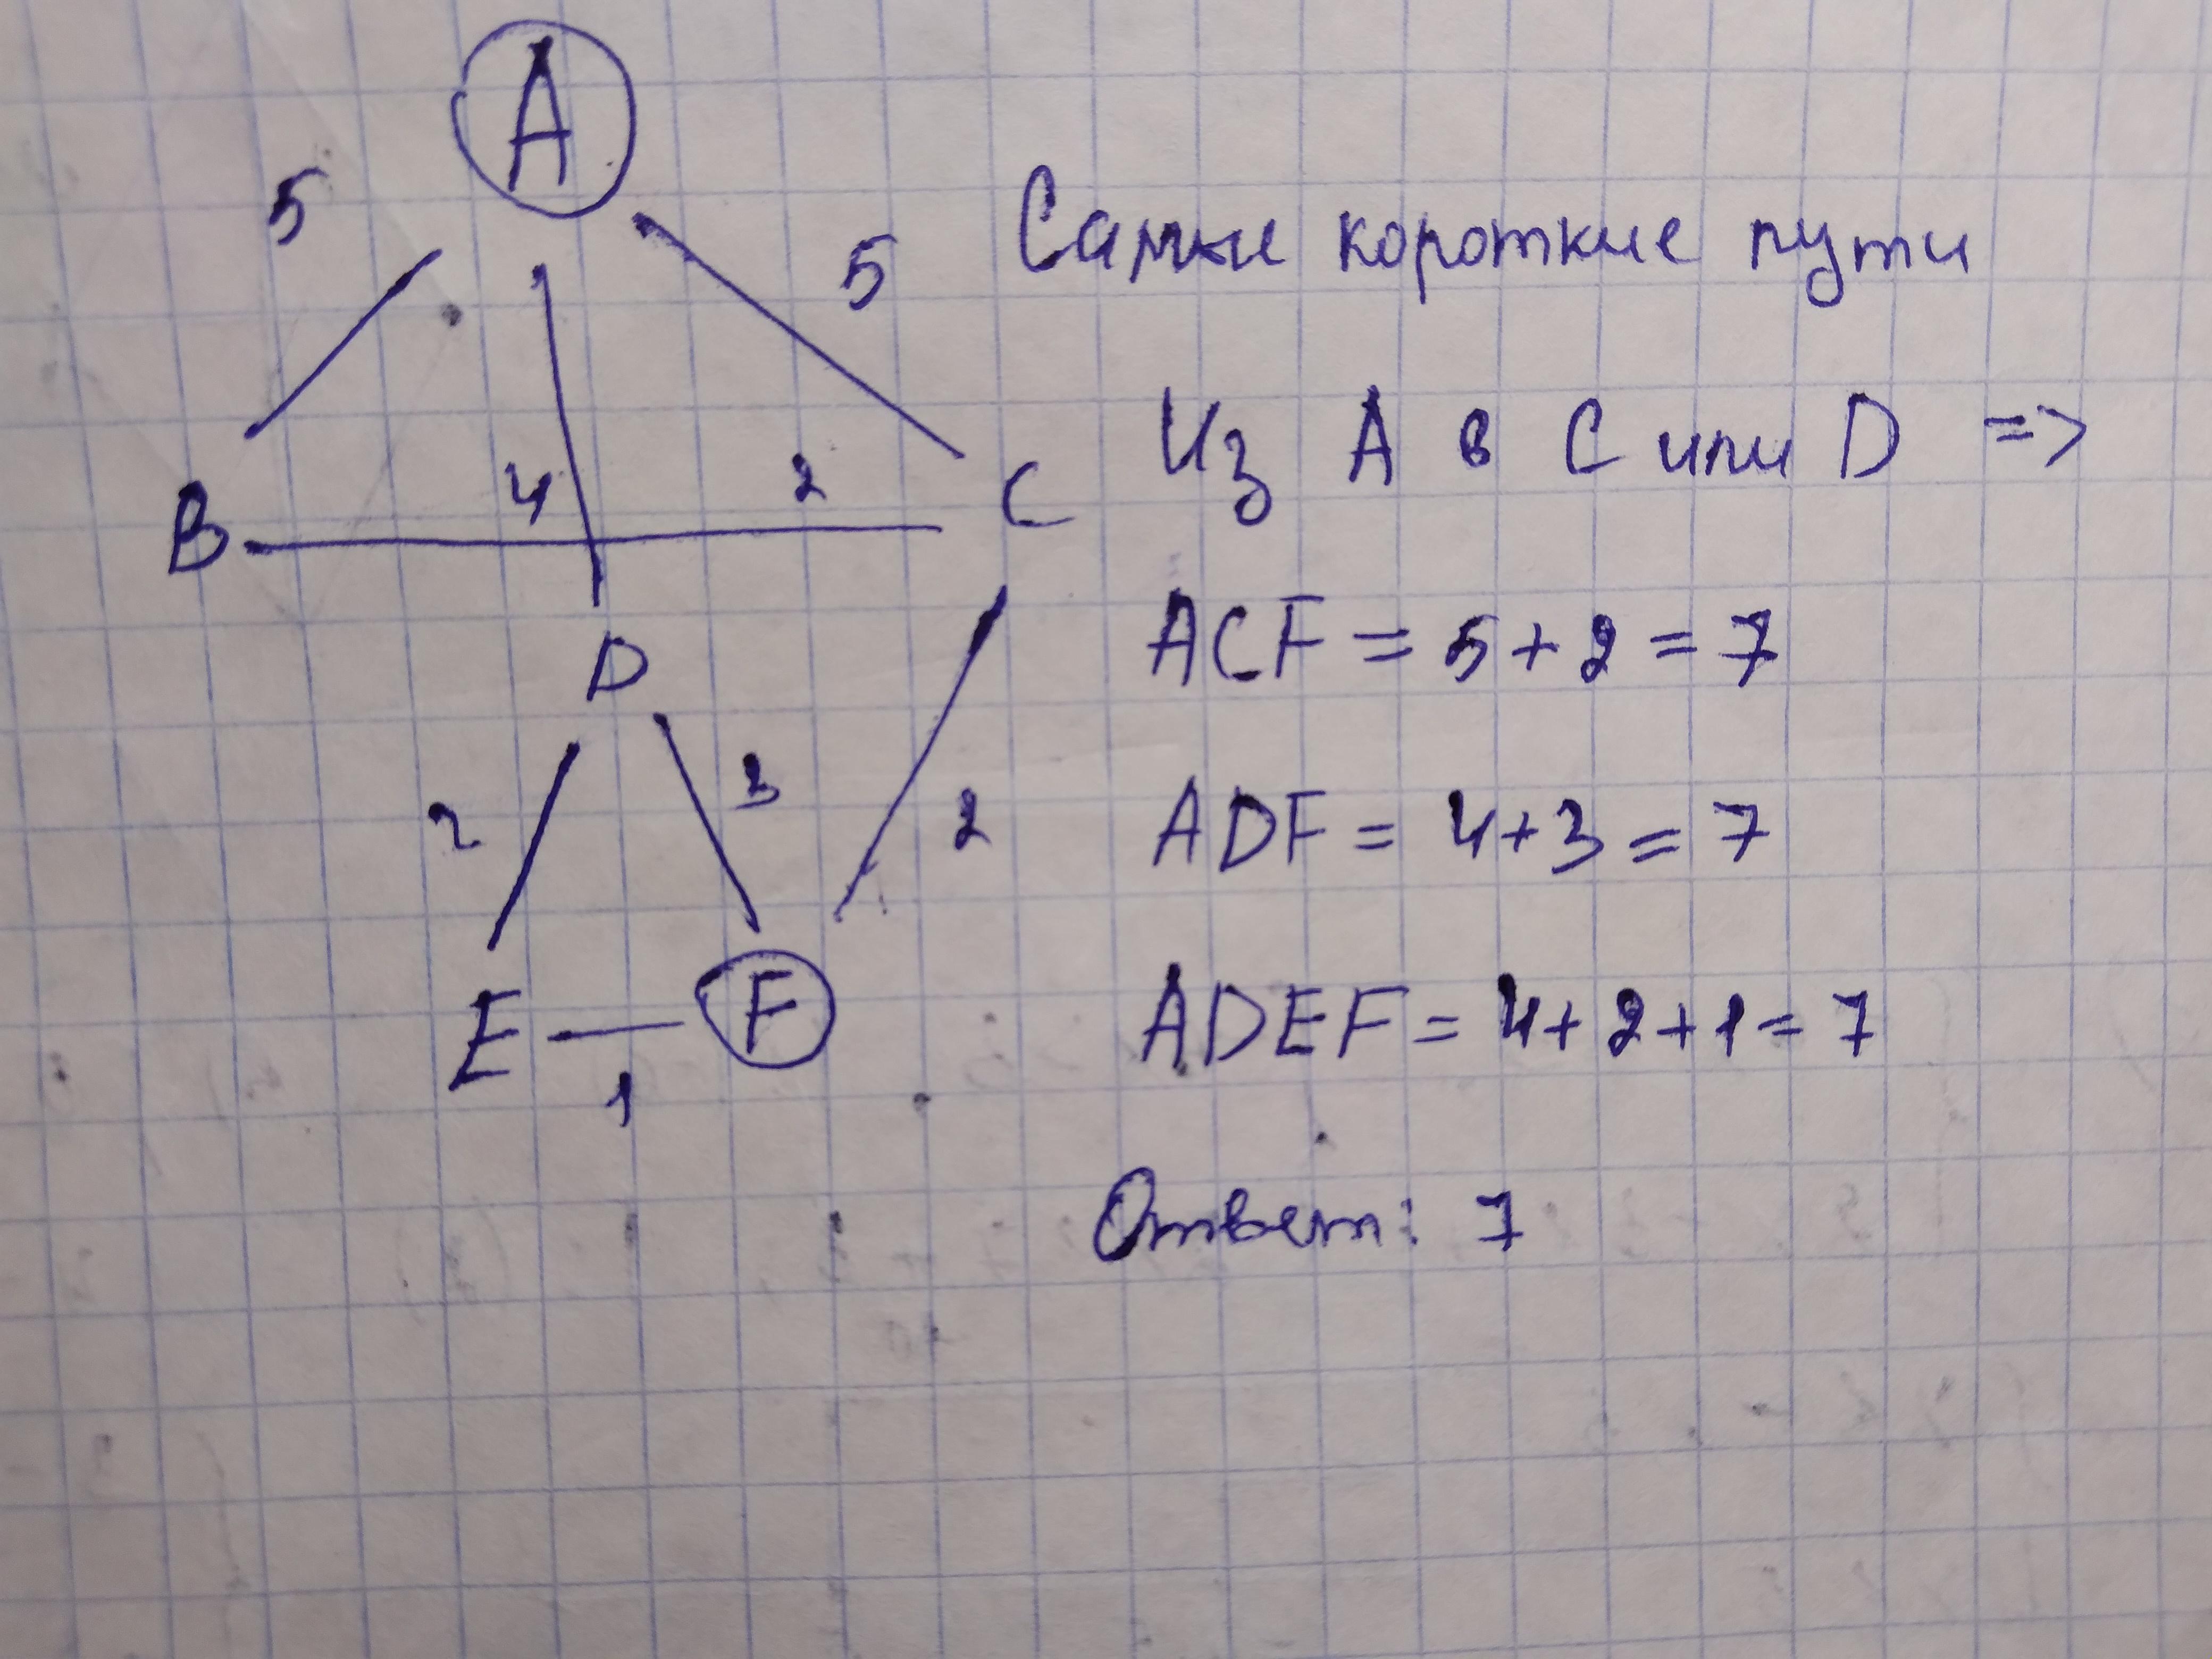 A
5
5
Самые короткие пути
Из A в C или D =>
4
2
B
C
D
ACF = 5+2 = 7
2
3
2
ADF = 4+3 = 7
E
F
ADEF = 4+2+1= 7
1
Ответ: 7